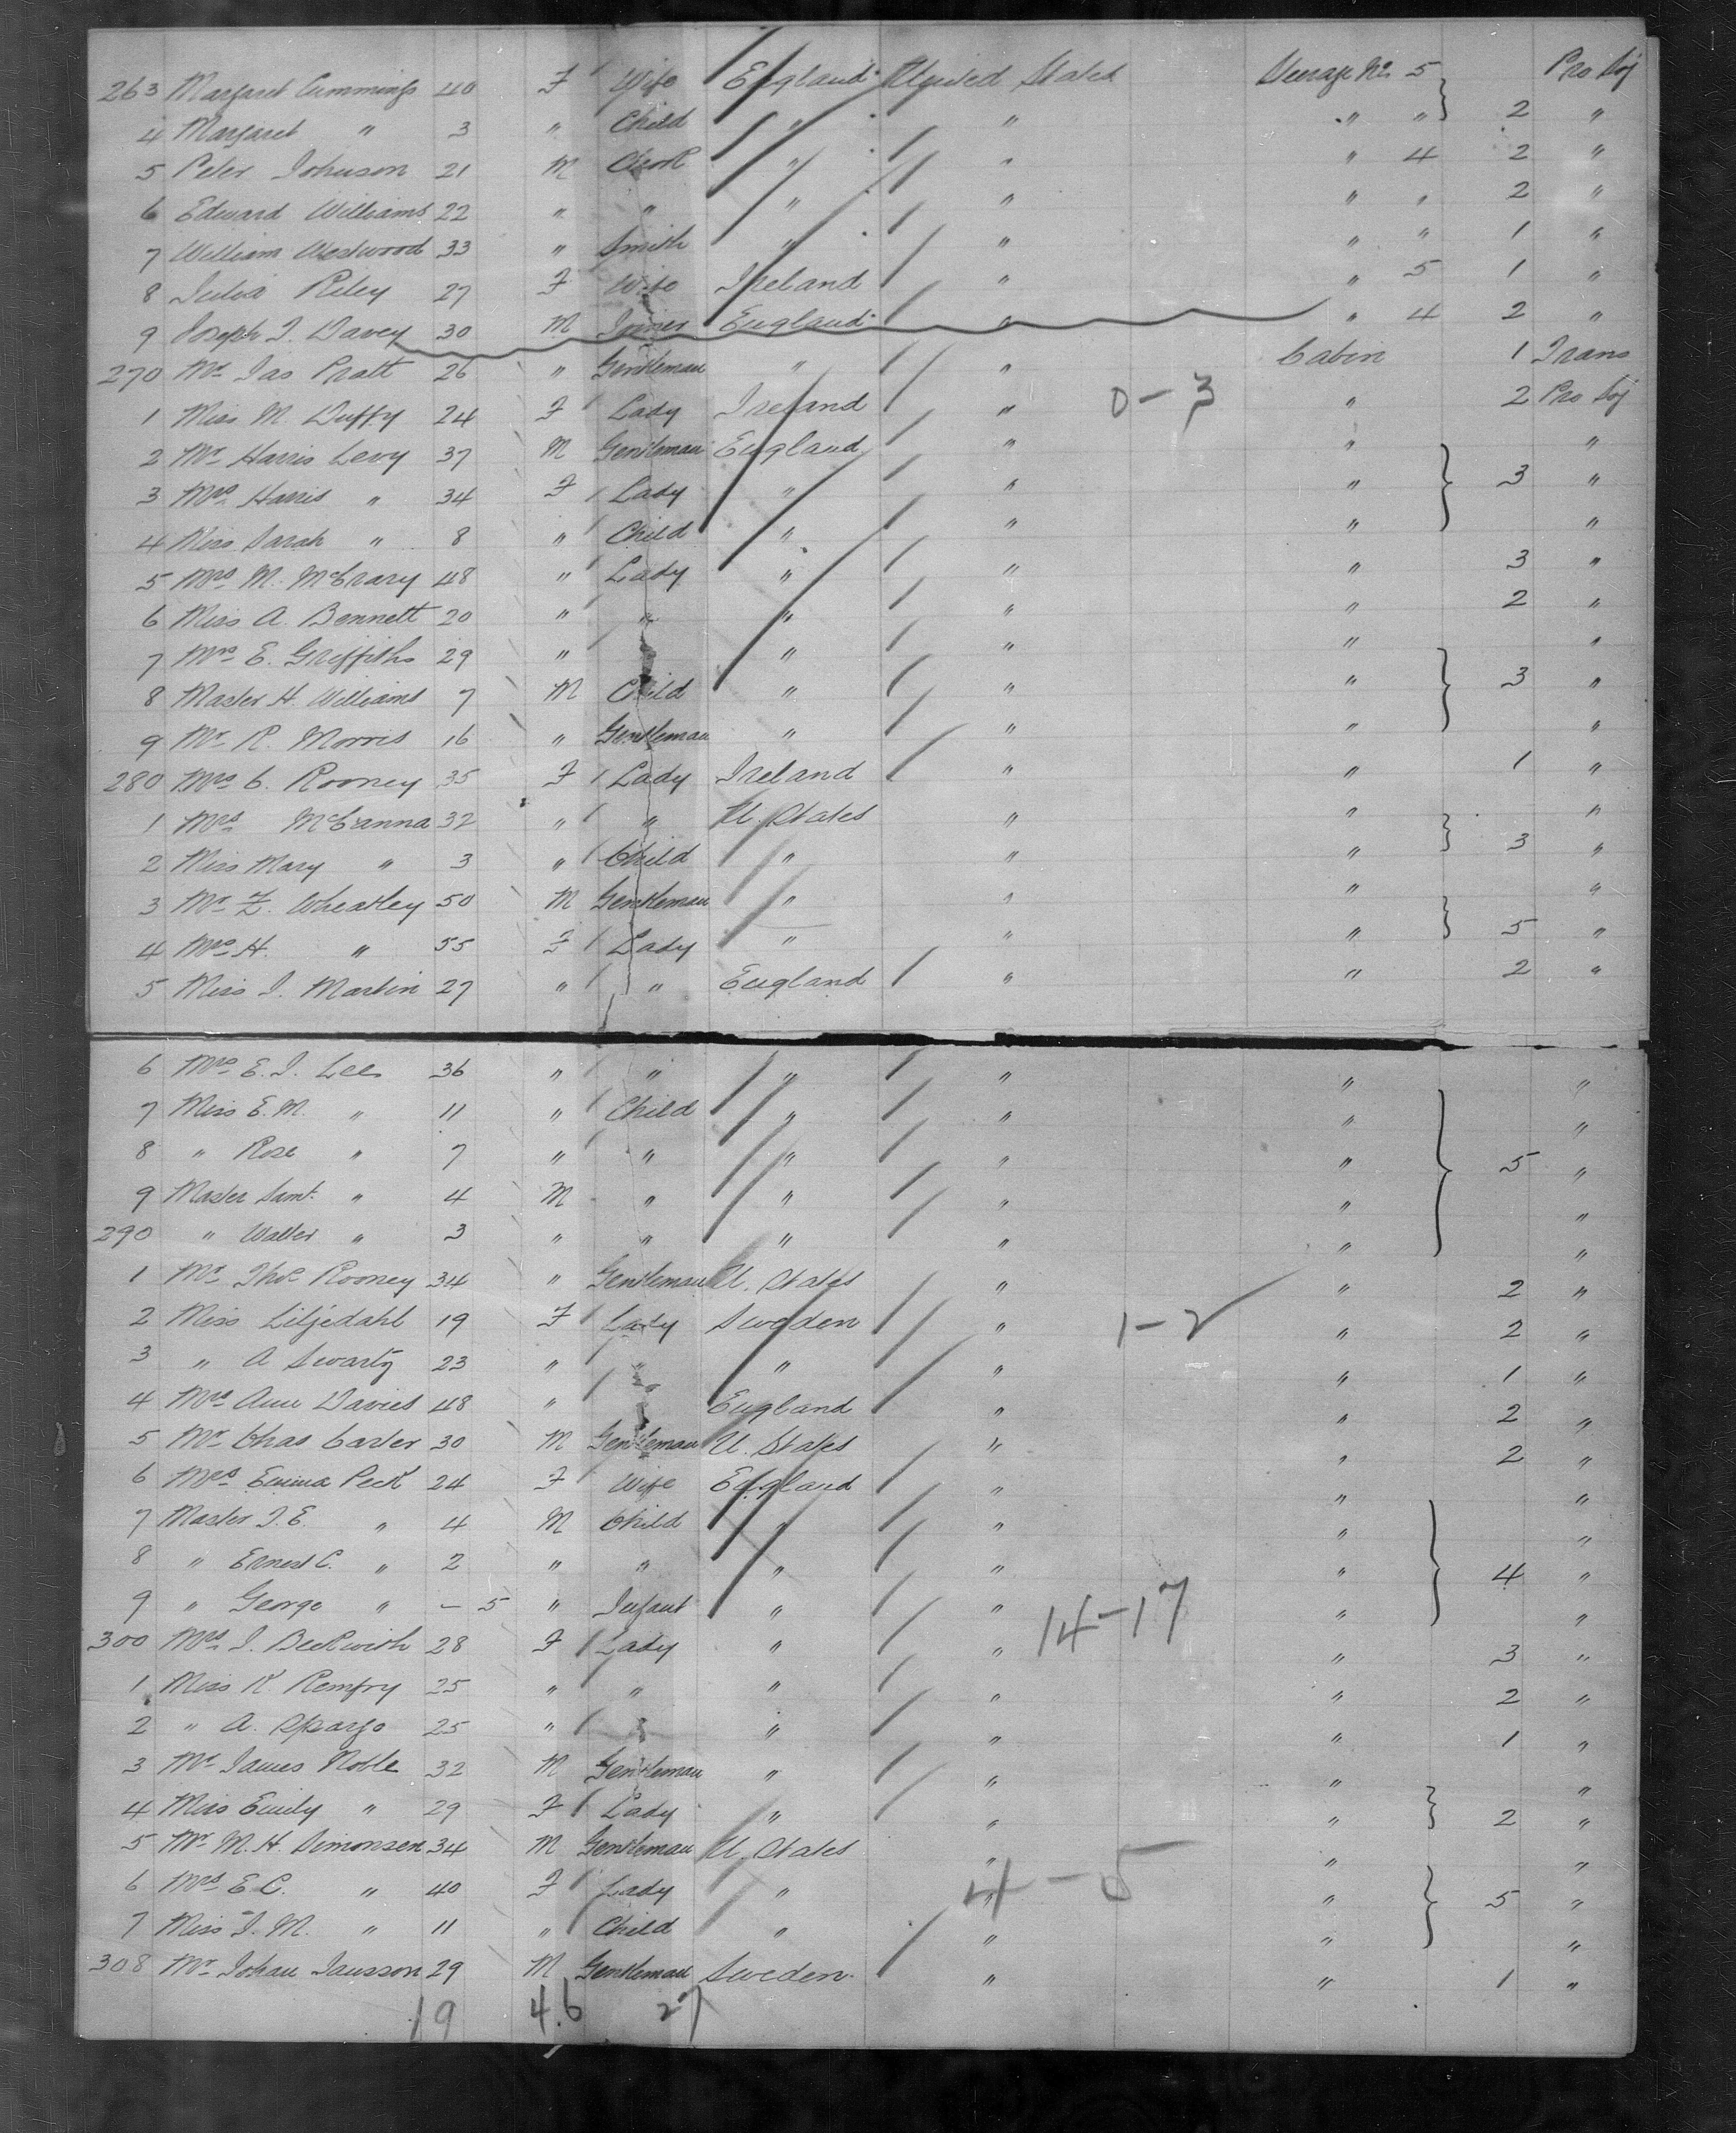 263 Margaret Cummings 40 F Wife England United States Steerage No 5 Pro Soj
4 Margaret " 3 " Child " " " " 2 "
5 Peter Johnson 21 M Clerk " " " 4 2 "
6 Edward Williams 22 " " " " " " 2 "
7 William Westwood 33 " Smith " " " " 1 "
8 Julia Riley 27 F Wife Ireland " " 5 1 "
9 Joseph J. Davey 30 M Joiner England " " 4 2 "
270 Mr Jas Pratt 26 " Gentleman " " Cabin 1 Trans
1 Miss M. Duffy 24 F Lady Ireland " 0-3 " 2 Pro Soj
2 Mr Harris Levy 37 M Gentleman England " " "
3 Mrs Harris " 34 F Lady " " " 3 "
4 Miss Sarah " 8 " Child " " " "
5 Mrs M. McCrary 48 " Lady " " " 3 "
6 Miss A. Bennett 20 " " " " " 2 "
7 Mrs E. Griffiths 29 " " " " "
8 Master H. Williams 7 M Child " " " 3 "
9 Mr R. Morris 16 " Gentleman " " " "
280 Mrs C. Rooney 35 F Lady Ireland " " 1 "
1 Mrs McCanna 32 " " U. States " " "
2 Miss Mary " 3 " Child " " " 3 "
3 Mr Z. Wheatley 50 M Gentleman " " " "
4 Mrs H. " 55 F Lady " " " 5 "
5 Miss J. Martin 27 " " England " " 2 "
6 Mrs E. J. Lees 36 " " " " " "
7 Miss E. M. " 11 " Child " " " "
8 " Rose " 7 " " " " " 5 "
9 Master Saml. " 4 M " " " " "
290 " Walter " 3 " " " " " "
1 Mr Thos Rooney 34 " Gentleman U. States " " 2 "
2 Miss Liljedahl 19 F Lady Sweden " 1-2 " 2 "
3 " A Swartz 23 " " " " " 1 "
4 Mrs Ann Davies 48 " England " " 2 "
5 Mr Chas Carter 30 M Gentleman U. States " " 2 "
6 Mrs Emma Peck 24 F Wife England " " "
7 Master J. E. " 4 M Child " " " "
8 " Ernest C. " 2 " " " " " 4 "
9 " George " - 5 " Infant " " 14-17 " "
300 Mrs J. Beckwith 28 F Lady " " " 3 "
1 Miss K. Remfry 25 " " " " " 2 "
2 " A. Spargo 25 " " " " 1 "
3 Mr James Noble 32 M Gentleman " " " "
4 Miss Emily " 29 F Lady " " " 2 "
5 Mr M. H. Simonsen 34 M Gentleman U. States " " "
6 Mrs E C. " 40 F Lady " " 4-5 " 5 "
7 Miss J. M. " 11 " Child " " " "
308 Mr Johan Jansson 29 M Gentleman Sweden " " 1 "
19 46 27